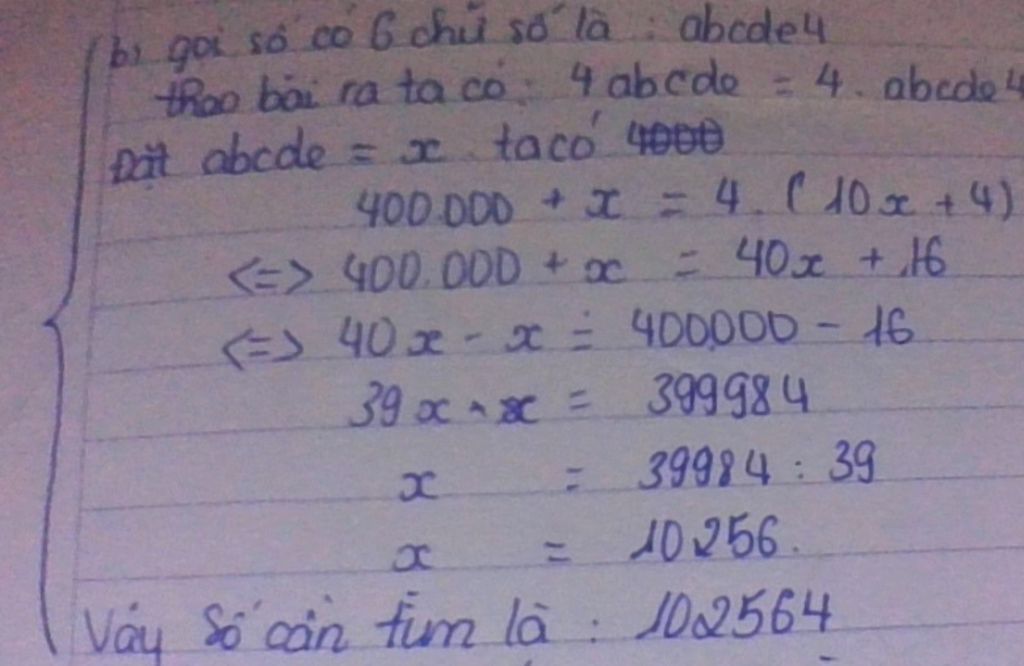 b) gọi số có 6 chữ số là : abcde4
theo bài ra ta có : 4abcde = 4 . abcde4
Đặt abcde = x ta có 4000
400.000 + x = 4 . ( 10x + 4)
<=> 400.000 + x = 40x + 16
<=> 40x - x = 400000 - 16
39x = 399984
x = 39984 : 39
x = 10256.
Vậy Số cần tìm là : 102564